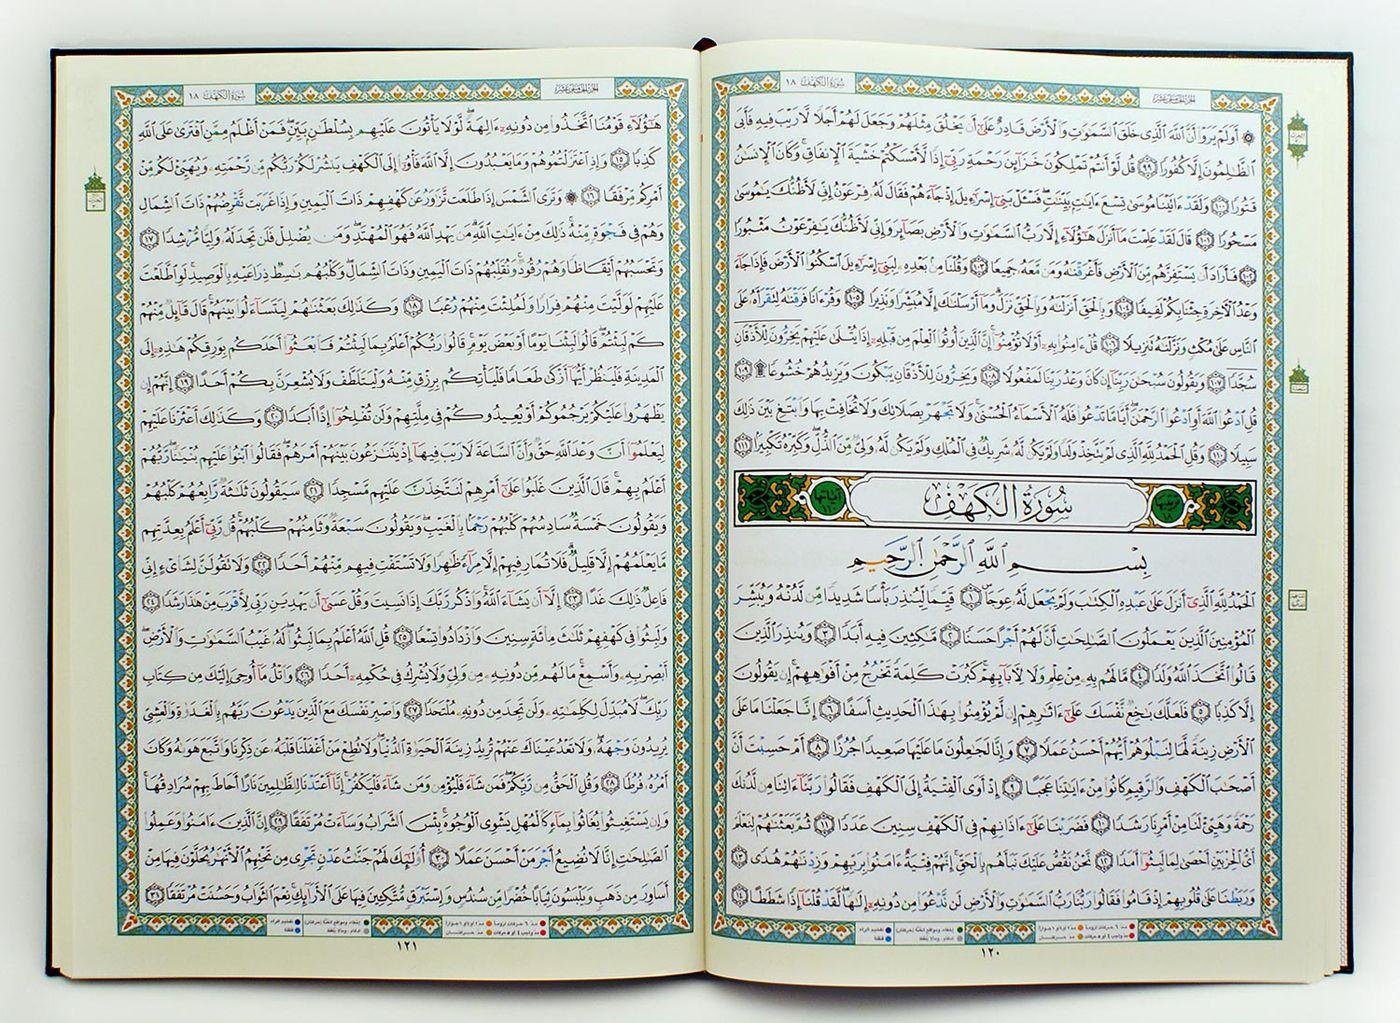 سورة الكهف ١٨
الجزء الخامس عشر
۞ أولم يروا أن الله الذى خلق السموت والأرض قادر على أن يخلق مثلهم وجعل لهم أجلا لا ريب فيه فأبى
الظلمون إلا كفورا ٩٩ قل لو أنتم تملكون خزاين رحمة ربى إذا لأمسكتم خشية الإنفاق وكان الإنسن
قتورا ١٠٠ ولقد ءاتينا موسى تسع ءايت بينت فسئل بنى إسرءيل إذ جاءهم فقال له فرعون إنى لأظنك يموسى
مسحورا ١٠١ قال لقد علمت ما أنزل هؤلاء إلا رب السموت والأرض بصاير وإنى لأظنك يفرعون مثبورا
١٠٢ فأراد أن يستفزهم من الأرض فأغرقنه ومن معه جميعا ١٠٣ وقلنا من بعده لبنى إسرءيل اسكنوا الأرض فإذا جاء
وعد الأخرة جئنا بكم لفيفا ١٠٤ وبالحق أنزلنه وبالحق نزل وما أرسلنك إلا مبشرا ونذيرا ١٠٥ وقرءانا فرقنه لتقرأه على
الناس على مكث ونزلنه تنزيلا ١٠٦ قل ءامنوا به أو لا تؤمنوا إن الذين أوتوا العلم من قبله إذا يتلى عليهم يخرون للأذقان
سجدا ١٠٧ ويقولون سبحن ربنا إن كان وعد ربنا لمفعولا ١٠٨ ويخرون للأذقان يبكون ويزيدهم خشوعا ۩ ١٠٩
قل ادعوا الله أو ادعوا الرحمن أيا ما تدعوا فله الأسماء الحسنى ولا تجهر بصلاتك ولا تخافت بها وابتغ بين ذلك
سبيلا ١١٠ وقل الحمد لله الذى لم يتخذ ولدا ولم يكن له شريك فى الملك ولم يكن له ولى من الذل وكبره تكبيرا ١١١
سورة الكهف
بسم الله الرحمن الرحيم
الحمد لله الذى أنزل على عبده الكتب ولم يجعل له عوجا ١ قيما لينذر بأسا شديدا من لدنه ويبشر
المؤمنين الذين يعملون الصلحت أن لهم أجرا حسنا ٢ مكثين فيه أبدا ٣ وينذر الذين
قالوا اتخذ الله ولدا ٤ ما لهم به من علم ولا لأبايهم كبرت كلمة تخرج من أفوههم إن يقولون
إلا كذبا ٥ فلعلك بخع نفسك على ءاثرهم إن لم يؤمنوا بهذا الحديث أسفا ٦ إنا جعلنا ما على
الأرض زينة لها لنبلوهم أيهم أحسن عملا ٧ وإنا لجعلون ما عليها صعيدا جرزا ٨ أم حسبت أن
أصحب الكهف والرقيم كانوا من ءايتنا عجبا ٩ إذ أوى الفتية إلى الكهف فقالوا ربنا ءاتنا من لدنك
رحمة وهيئ لنا من أمرنا رشدا ١٠ فضربنا على ءاذانهم فى الكهف سنين عددا ١١ ثم بعثنهم لنعلم
أى الحزبين أحصى لما لبثوا أمدا ١٢ نحن نقص عليك نبأهم بالحق إنهم فتية ءامنوا بربهم وزدنهم هدى ١٣
وربطنا على قلوبهم إذ قاموا فقالوا ربنا رب السموت والأرض لن ندعوا من دونه إلها لقد قلنا إذا شططا ١٤
١٢٠
سورة الكهف ١٨
الجزء الخامس عشر
هؤلاء قومنا اتخذوا من دونه ءالهة لولا يأتون عليهم بسلطن بين فمن أظلم ممن افترى على الله
كذبا ١٥ وإذ اعتزلتموهم وما يعبدون إلا الله فأوا إلى الكهف ينشر لكم ربكم من رحمته ويهيئ لكم من
أمركم مرفقا ١٦ ۞ وترى الشمس إذا طلعت تزور عن كهفهم ذات اليمين وإذا غربت تقرضهم ذات الشمال
وهم فى فجوة منه ذلك من ءايت الله من يهد الله فهو المهتد ومن يضلل فلن تجد له وليا مرشدا ١٧
وتحسبهم أيقاظا وهم رقود ونقلبهم ذات اليمين وذات الشمال وكلبهم بسط ذراعيه بالوصيد لو اطلعت
عليهم لوليت منهم فرارا ولملئت منهم رعبا ١٨ وكذلك بعثنهم ليتساءلوا بينهم قال قايل منهم
كم لبثتم قالوا لبثنا يوما أو بعض يوم قالوا ربكم أعلم بما لبثتم فابعثوا أحدكم بورقكم هذه إلى
المدينة فلينظر أيها أزكى طعاما فليأتكم برزق منه وليتلطف ولا يشعرن بكم أحدا ١٩ إنهم إن
يظهروا عليكم يرجموكم أو يعيدوكم فى ملتهم ولن تفلحوا إذا أبدا ٢٠ وكذلك أعثرنا عليهم
ليعلموا أن وعد الله حق وأن الساعة لا ريب فيها إذ يتنزعون بينهم أمرهم فقالوا ابنوا عليهم بنينا ربهم
أعلم بهم قال الذين غلبوا على أمرهم لنتخذن عليهم مسجدا ٢١ سيقولون ثلثة رابعهم كلبهم
ويقولون خمسة سادسهم كلبهم رجما بالغيب ويقولون سبعة وثامنهم كلبهم قل ربى أعلم بعدتهم
ما يعلمهم إلا قليل فلا تمار فيهم إلا مراء ظهرا ولا تستفت فيهم منهم أحدا ٢٢ ولا تقولن لشاىء إنى
فاعل ذلك غدا ٢٣ إلا أن يشاء الله واذكر ربك إذا نسيت وقل عسى أن يهدين ربى لأقرب من هذا رشدا ٢٤
ولبثوا فى كهفهم ثلث مائة سنين وازدادوا تسعا ٢٥ قل الله أعلم بما لبثوا له غيب السموت والأرض
أبصر به وأسمع ما لهم من دونه من ولى ولا يشرك فى حكمه أحدا ٢٦ واتل ما أوحى إليك من كتاب
ربك لا مبدل لكلمته ولن تجد من دونه ملتحدا ٢٧ واصبر نفسك مع الذين يدعون ربهم بالغدوة والعشى
يريدون وجهه ولا تعد عيناك عنهم تريد زينة الحيوة الدنيا ولا تطع من أغفلنا قلبه عن ذكرنا واتبع هوىه وكان
أمره فرطا ٢٨ وقل الحق من ربكم فمن شاء فليؤمن ومن شاء فليكفر إنا أعتدنا للظلمين نارا أحاط بهم سرادقها
وإن يستغيثوا يغاثوا بماء كالمهل يشوى الوجوه بئس الشراب وساءت مرتفقا ٢٩ إن الذين ءامنوا وعملوا
الصلحت إنا لا نضيع أجر من أحسن عملا ٣٠ أولئك لهم جنت عدن تجرى من تحتهم الأنهر يحلون فيها من
أساور من ذهب ويلبسون ثيابا خضرا من سندس وإستبرق متكئين فيها على الأرايك نعم الثواب وحسنت مرتفقا ٣١
١٢١